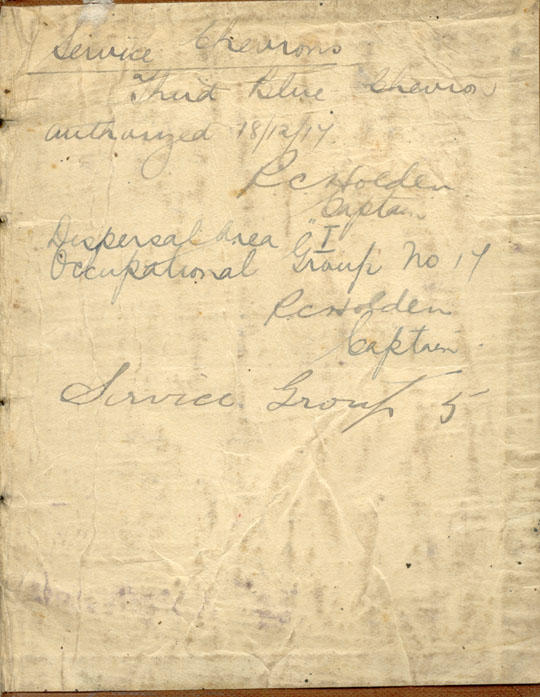 Service Chevrons
Third Blue Chevron
authorized 18/12/17
R.C. Holden
Captain
Dispersal Area "I"
Occupational Group No 17
R.C. Holden
Captain.
Service Group 5